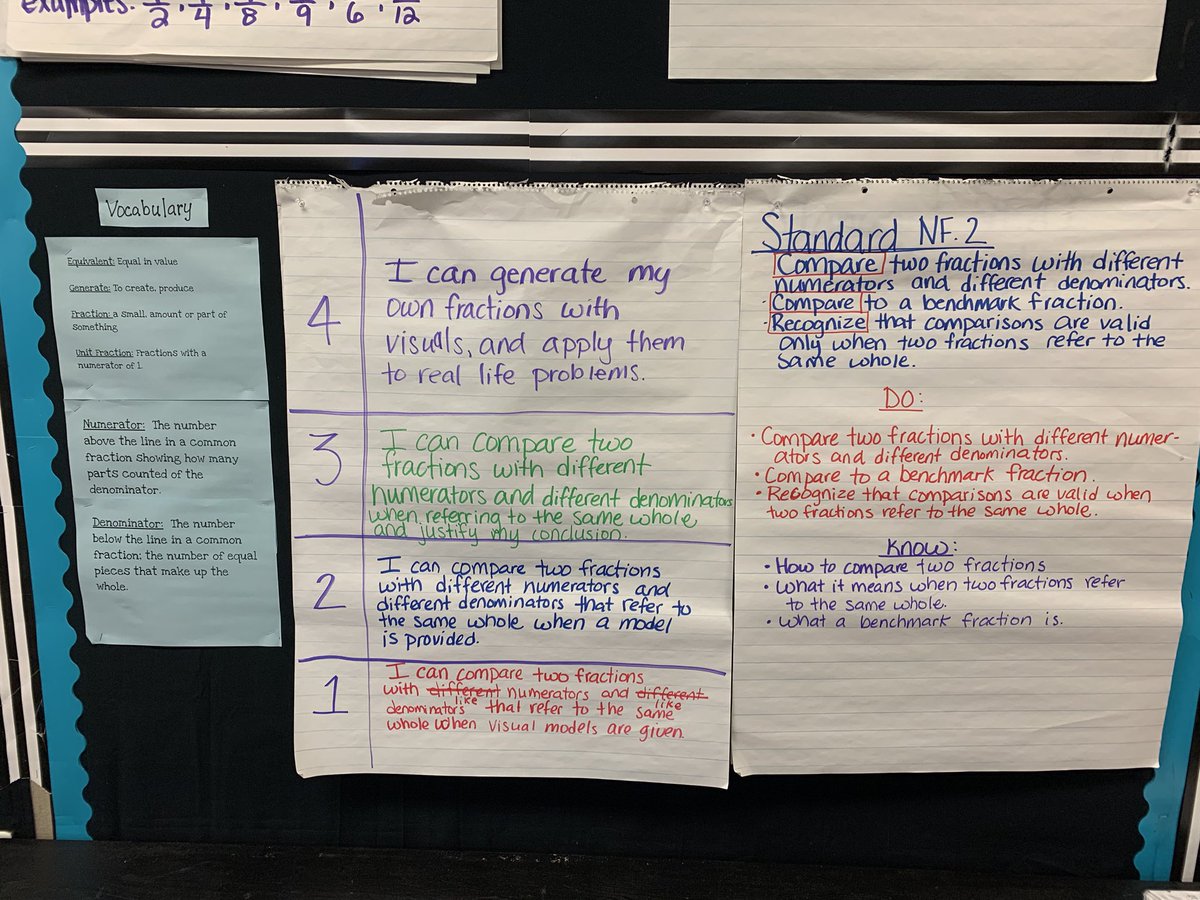 examples: 1/2, 1/4, 1/8, 1/9, 1/6, 1/12
Vocabulary
Equivalent: Equal in value
Generate: To create, produce
Fraction: a small, amount or part of
something
Unit Fraction: Fractions with a
numerator of 1.
Numerator: The number
above the line in a common
fraction showing how many
parts counted of the
denominator.
Denominator: The number
below the line in a common
fraction: the number of equal
pieces that make up the
whole.
4
I can generate my
own fractions with
visuals, and apply them
to real life problems.
3
I can compare two
fractions with different
numerators and different denominators
when referring to the same whole,
and justify my conclusion.
2
I can compare two fractions
with different numerators and
different denominators that refer to
the same whole when a model
is provided.
1
I can compare two fractions
with different numerators and different
like like
denominators that refer to the same
whole when visual models are given.
Standard NF.2
Compare two fractions with different
numerators and different denominators.
· Compare to a benchmark fraction.
· Recognize that comparisons are valid
only when two fractions refer to the
same whole.
DO:
· Compare two fractions with different numer-
ators and different denominators.
• Compare to a benchmark fraction.
• Recognize that comparisons are valid when
two fractions refer to the same whole.
Know:
• How to compare two fractions
• What it means when two fractions refer
to the same whole.
• What a benchmark fraction is.